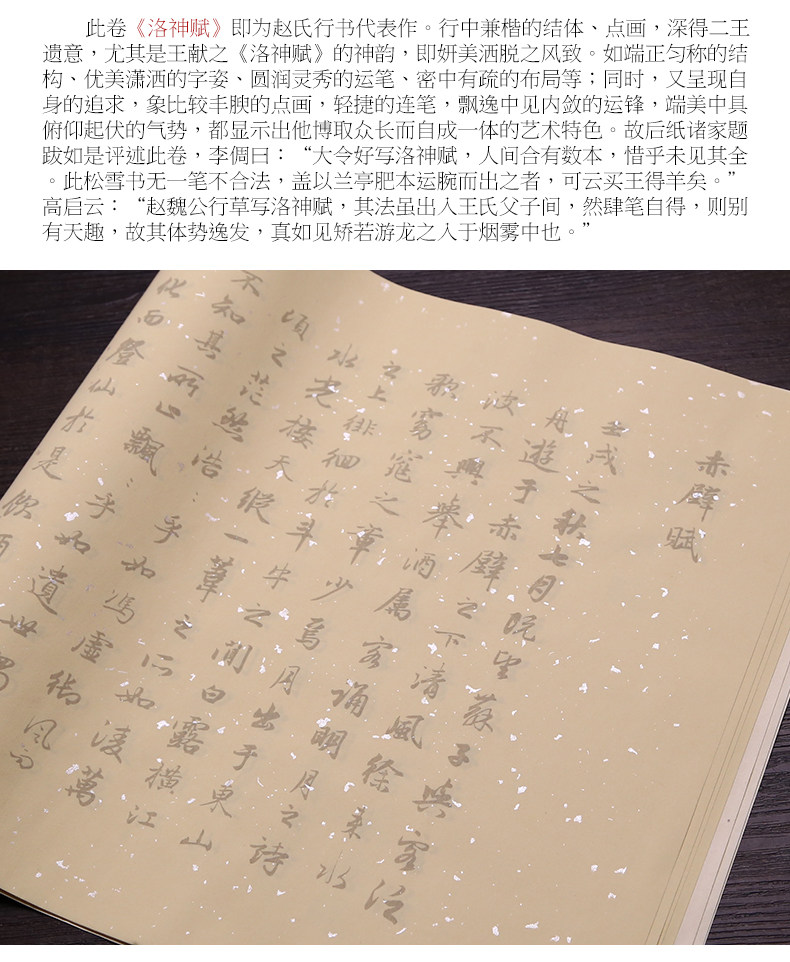 此卷《洛神赋》即为赵氏行书代表作。行中兼楷的结体、点画，深得二王
遗意，尤其是王献之《洛神赋》的神韵，即妍美洒脱之风致。如端正匀称的结
构、优美潇洒的字姿、圆润灵秀的运笔、密中有疏的布局等；同时，又呈现自
身的追求，象比较丰腴的点画，轻捷的连笔，飘逸中见内敛的运锋，端美中具
俯仰起伏的气势，都显示出他博取众长而自成一体的艺术特色。故后纸诸家题
跋如是评述此卷，李倜曰：“大令好写洛神赋，人间合有数本，惜乎未见其全
。此松雪书无一笔不合法，盖以兰亭肥本运腕而出之者，可云买王得羊矣。”
高启云：“赵魏公行草写洛神赋，其法虽出入王氏父子间，然肆笔自得，则别
有天趣，故其体势逸发，真如见矫若游龙之入于烟雾中也。”
赤壁賦
壬戌之秋七月既望蘇子與客泛
舟遊于赤壁之下清風徐來水
波不興舉酒属客誦明月之詩
歌窈窕之章少焉月出于東山
之上徘徊於斗牛之間白露橫江
水光接天縱一葦之所如凌萬
頃之茫然浩：乎如馮虛御風而
不知其所止飄：乎如遺世獨
化而登仙於是飲酒